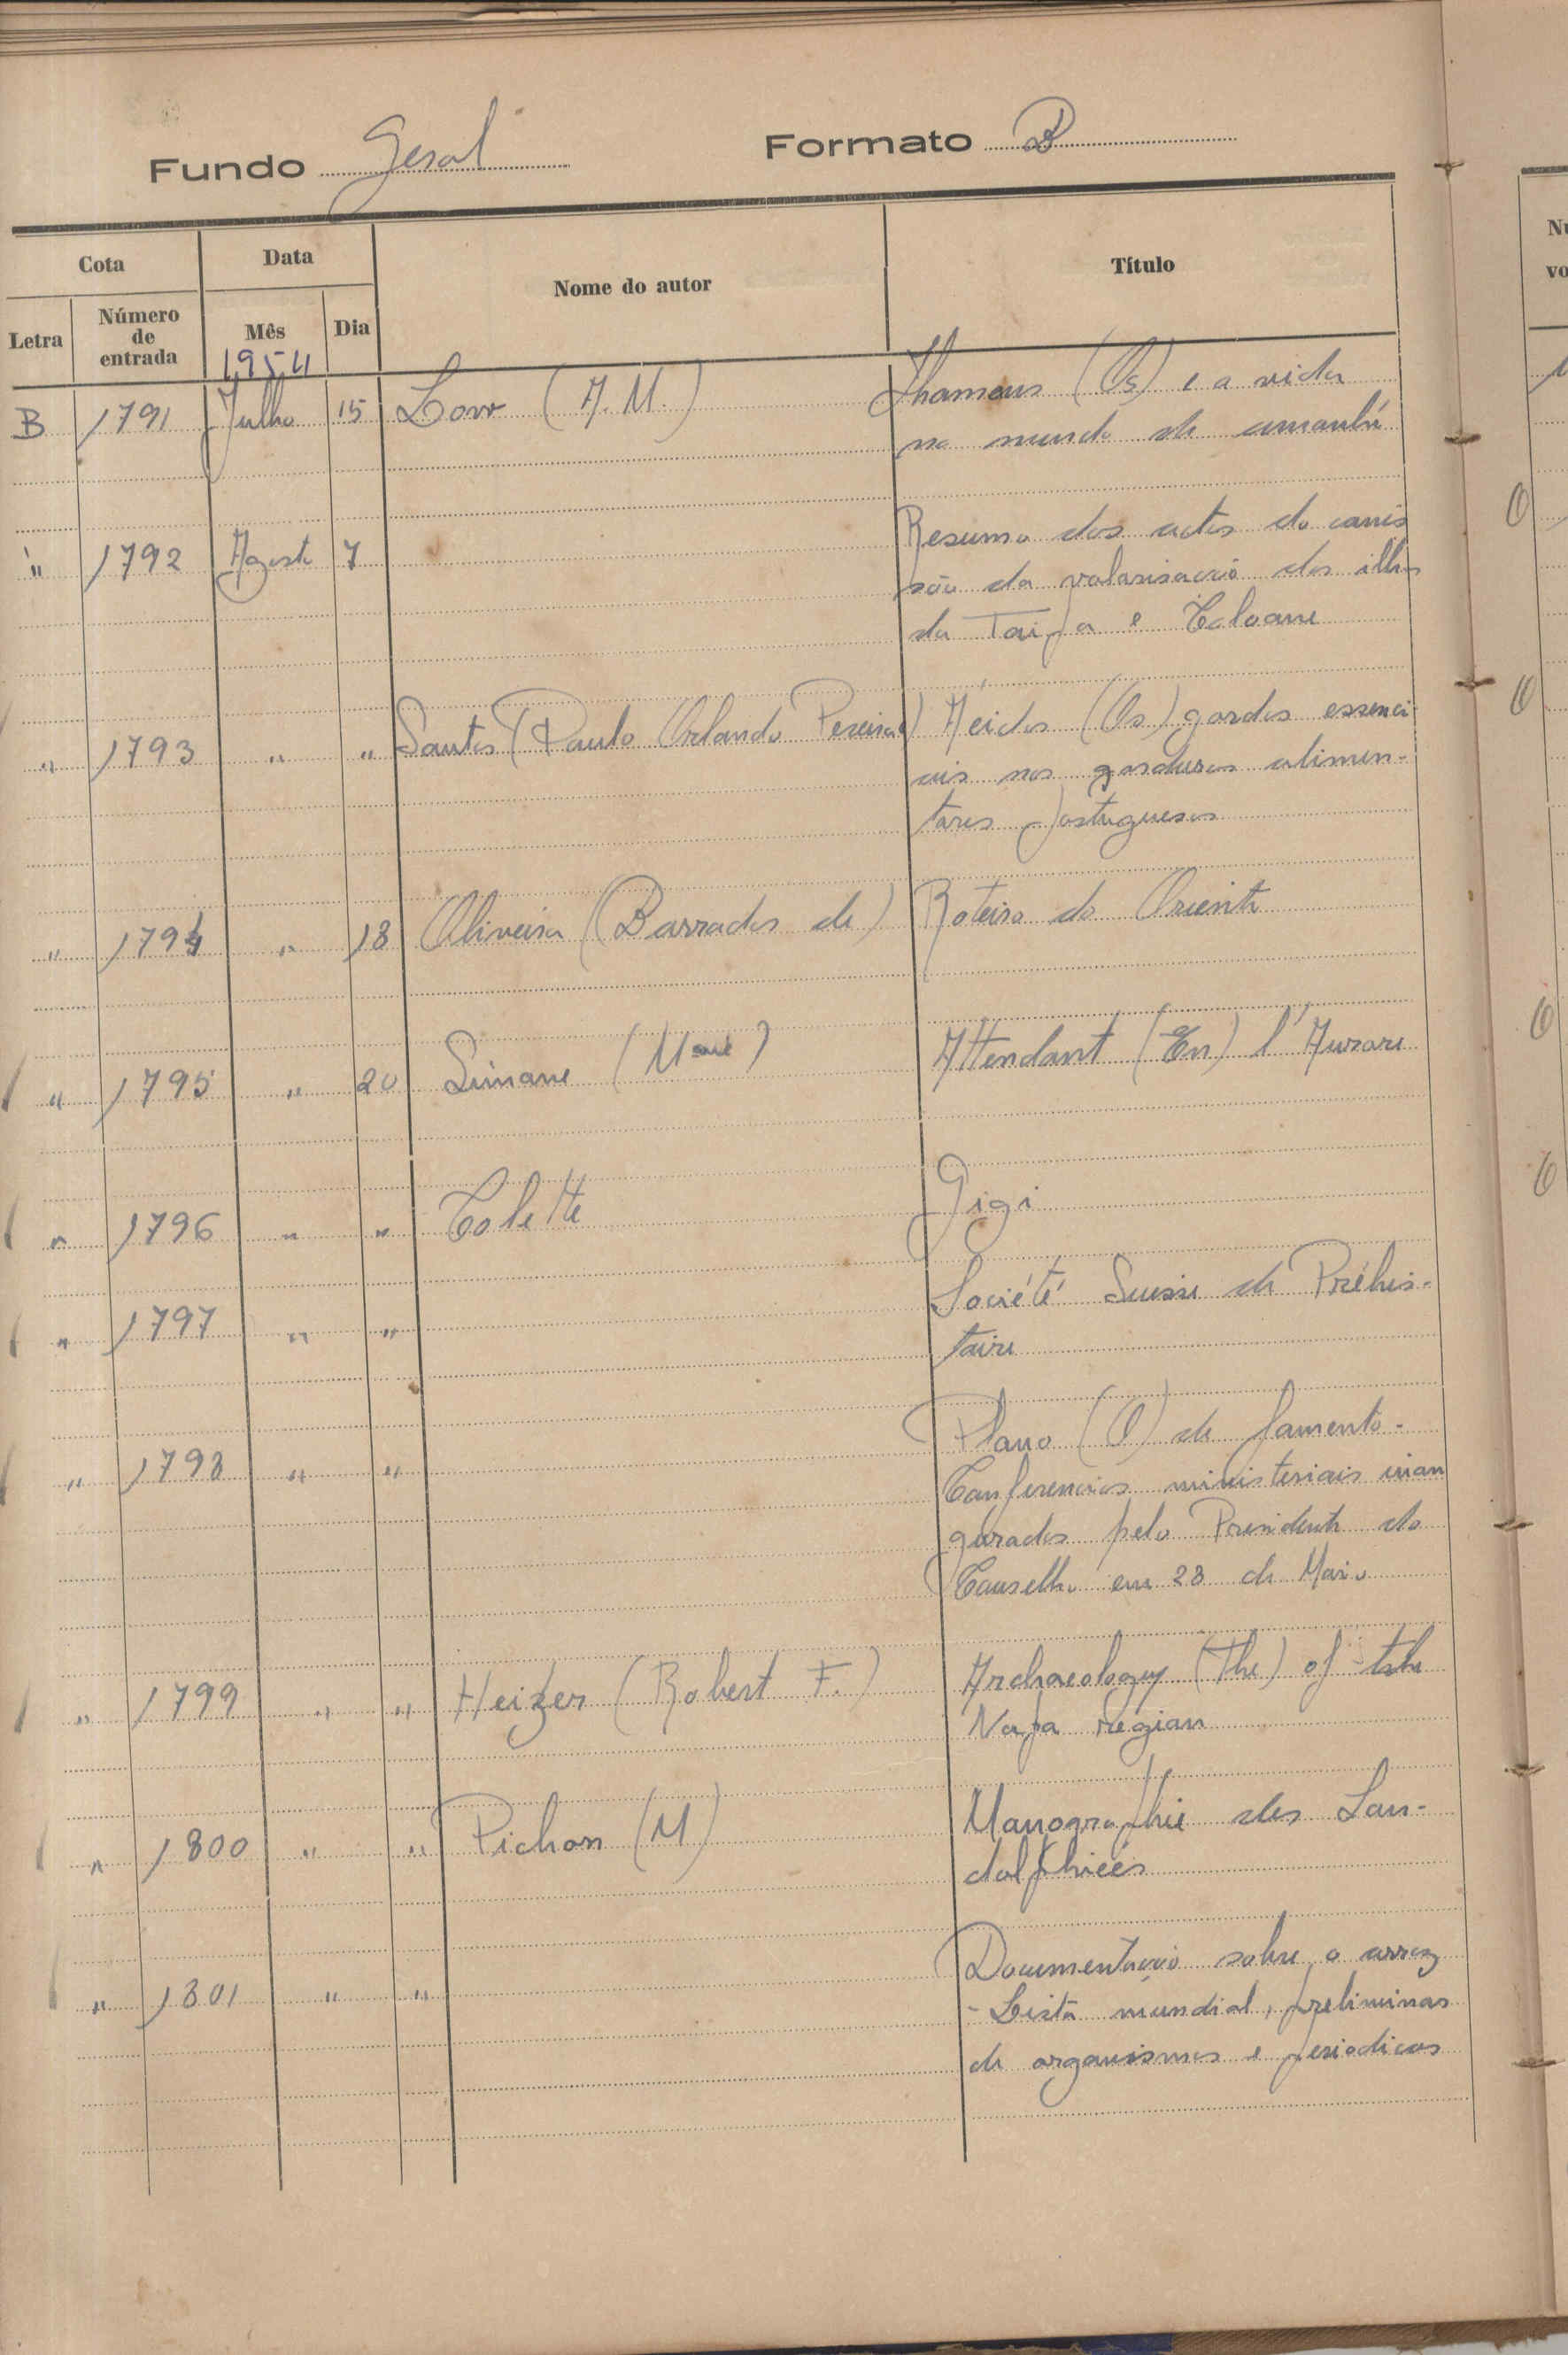 Fundo Geral Formato B
Cota Data Nome do autor Título
Letra Número de entrada Mês Dia
1954
B 1791 Julho 15 Low (A. M.) Homens (Os) e a vida
no mundo de amanhã
" 1792 Agosto 7 Resumo dos actos da comis
são da valorisação das ilhas
da Taipa e Coloane
" 1793 " " Santos (Paulo Orlando Pereira) Ácidos (Os) gordos essenci-
ais nas gorduras alimen-
tares portuguesas
" 1794 " 18 Oliveira (Barradas de) Roteiro do Oriente
" 1795 " 20 Simone (Mme) Attendant (En) l'Aurore
" 1796 " " Colette Gigi
" 1797 " " Société Suisse de Préhis-
toire
" 1798 " " Plano (O) de fomento -
Conferencias ministeriais inau
guradas pelo Presidente do
Conselho em 28 de Maio
" 1799 " " Heizer (Robert F.) Archaeology (The) of the
Napa region
" 1800 " " Pichon (M) Monographie des Lan-
dolphiées
" 1801 " " Documentação sobre o arroz
- Lista mundial, preliminar
de organismos e periodicos
Nu
vo